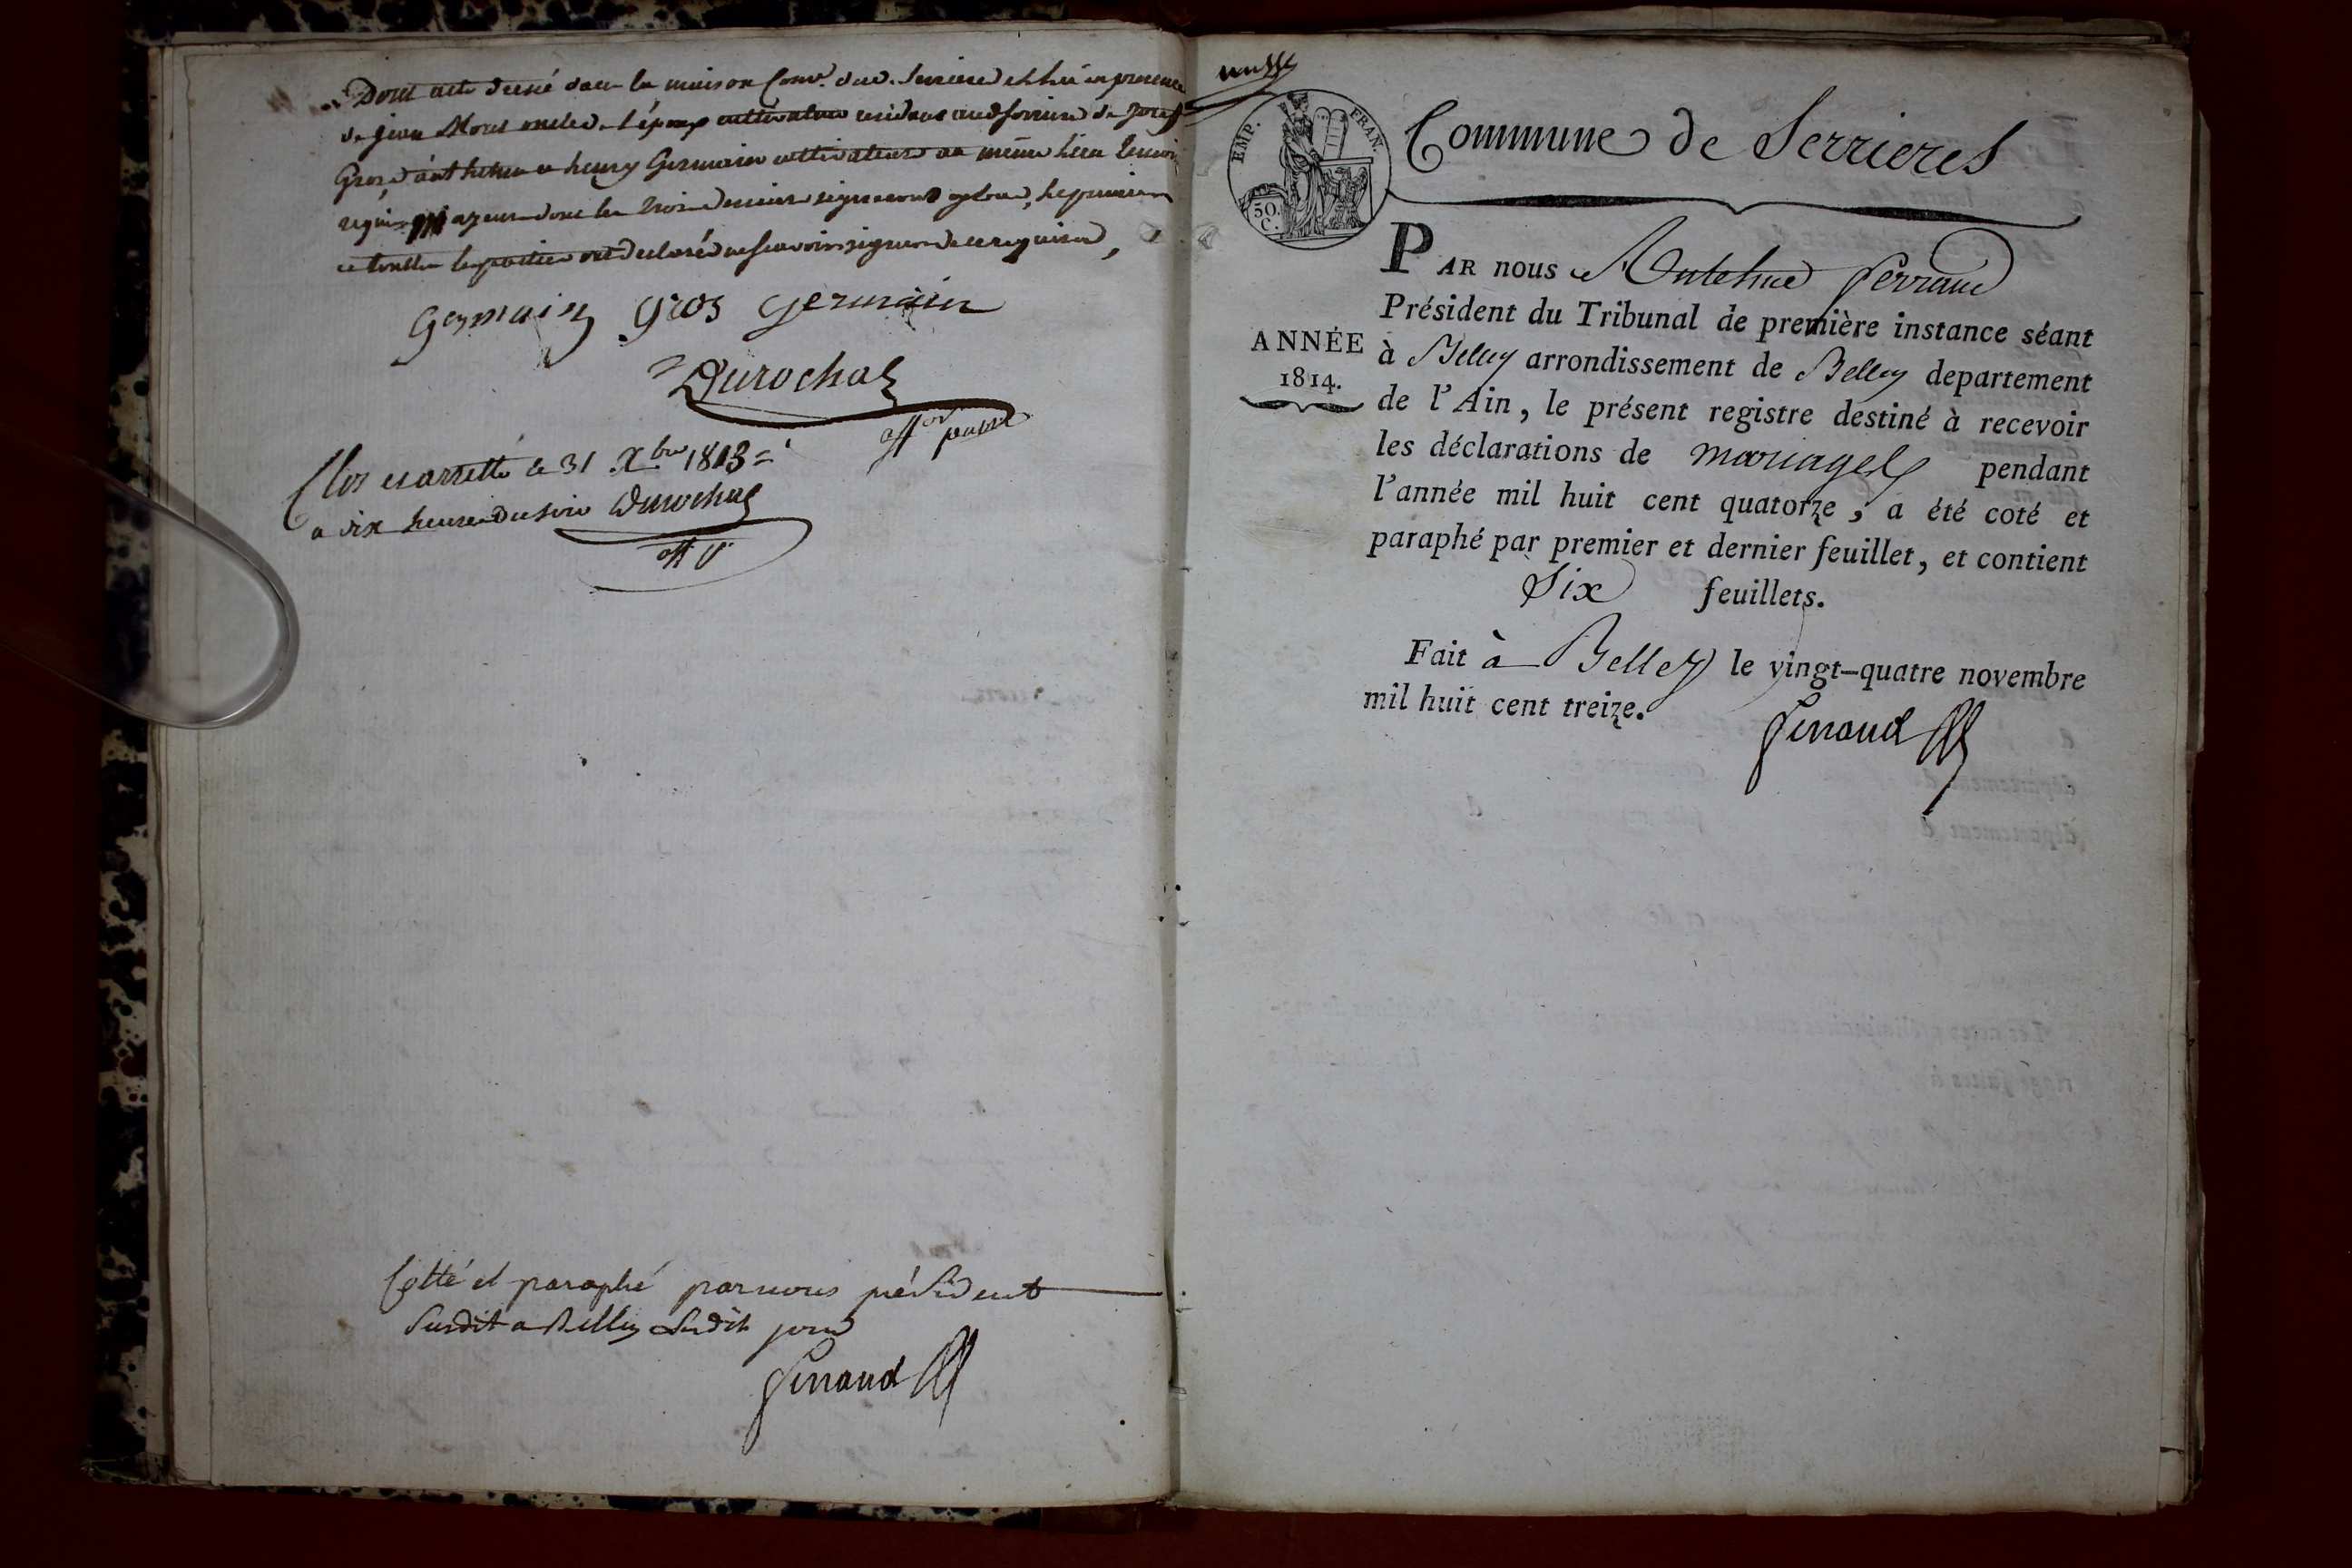 Dont acte dressé dans la maison Com.e dud. Serriere et lu en presence
de jean Moret oncle de l'époux cultivateur residant aud Serriere de Josef
Gros d'anthelme et henry Germain cultivateurs au même lieu temoins
requis majeurs dont les trois derniers signeront et non le premier
et toutes les parties ont declaré ne scavoir signer de ce requises,
Germain Gros Germain
Durochat
off.er public
Clos et arretté le 31 Xbre 1813 =
a six heures du soir Durochat
off P
Cotté et paraphé par nous président
Susdit a Belley Susdit jour
Ferraud
EMP. FRAN.
50.
C.
Commune de Serrieres
PAR nous Antelme Ferraud
Président du Tribunal de première instance séant
ANNÉE
1814.
à Belley arrondissement de Belley departement
de l'Ain, le présent registre destiné à recevoir
les déclarations de mariages pendant
l'année mil huit cent quatorze, a été coté et
paraphé par premier et dernier feuillet, et contient
Six feuillets.
Fait à Belley le vingt-quatre novembre
mil huit cent treize.
Ferraud